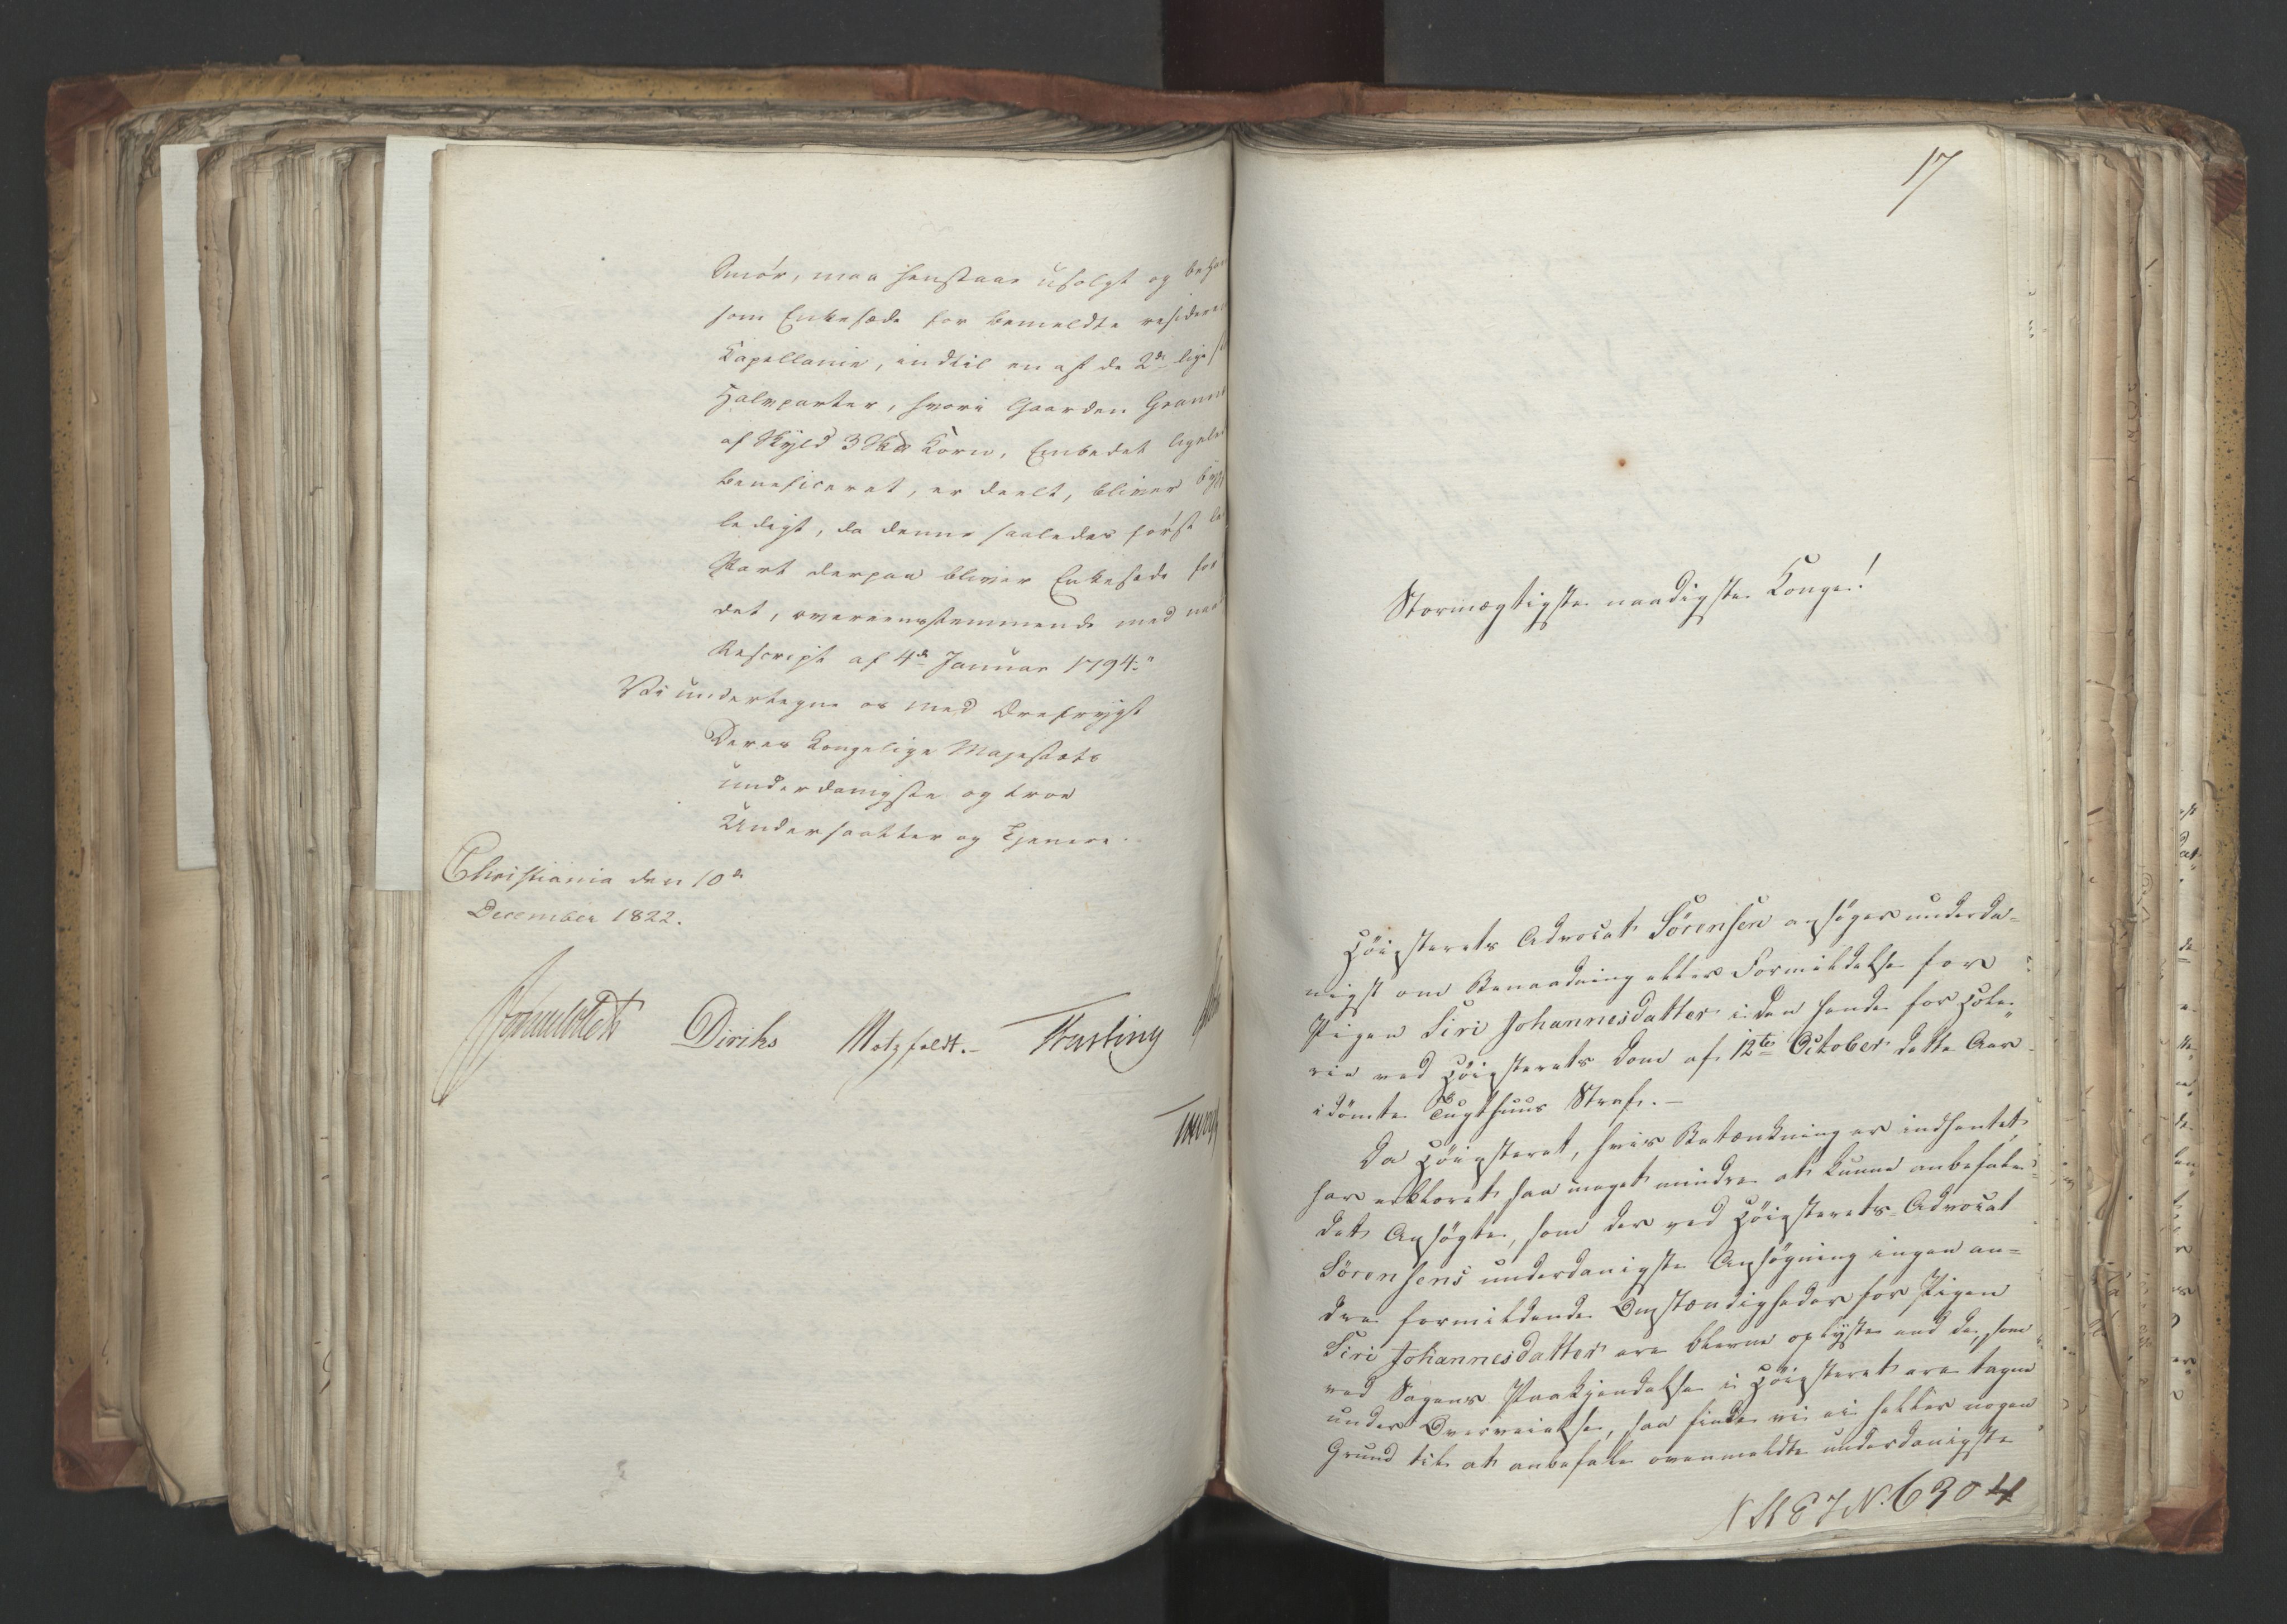 Smör, maa henstaae usolgt og
som Enkesæde for bemeldte
Kapellanie, indtil en af de 2de lige
Halvparter, hvori Gaarden
af Skyld 3 Korn, Embedet
beneficeret, er deelt, bliver
ledigt, da denne saaledes först
Part derpaa bliver Enkesæde for
det, overeensstemmende med
Rescript af 4de Januar 1794."
Vi undertegne os med Ærefrygt
Deres Kongelige Majestæts
underdanigste og troe
Undersaatter og Tjenere.
Christiania den 10de
December 1822.
Diriks Motzfeldt. Fasting
17
Stormægtigste naadigste Konge!
Höiesterets Advocat Sörensen ansöger underda-
nigst om Benaadning eller Formildelse for
Pigen Siri Johannesdatter i den hende for Hele-
rie ved Höiesterets Dom af 12te October dette Aar
idömte Tugthuus Straf.—
Da Höiesteret, hvis Betænkning er indhentet,
har erklæret saa meget mindre at kunne anbefale
det Ansögte, som der ved Höiesterets-Advocat
Sörensens underdanigste Ansögning ingen an-
dre formildende Omstændigheder for Pigen
Siri Johannesdatter ere blevne oplyste end de, som
ved Sagens Paakjendelse i Höiesteret ere tagne
under Overveielse, saa finde vi ei heller nogen
Grund til at anbefale ovenmeldte underdanigste
N. 6304